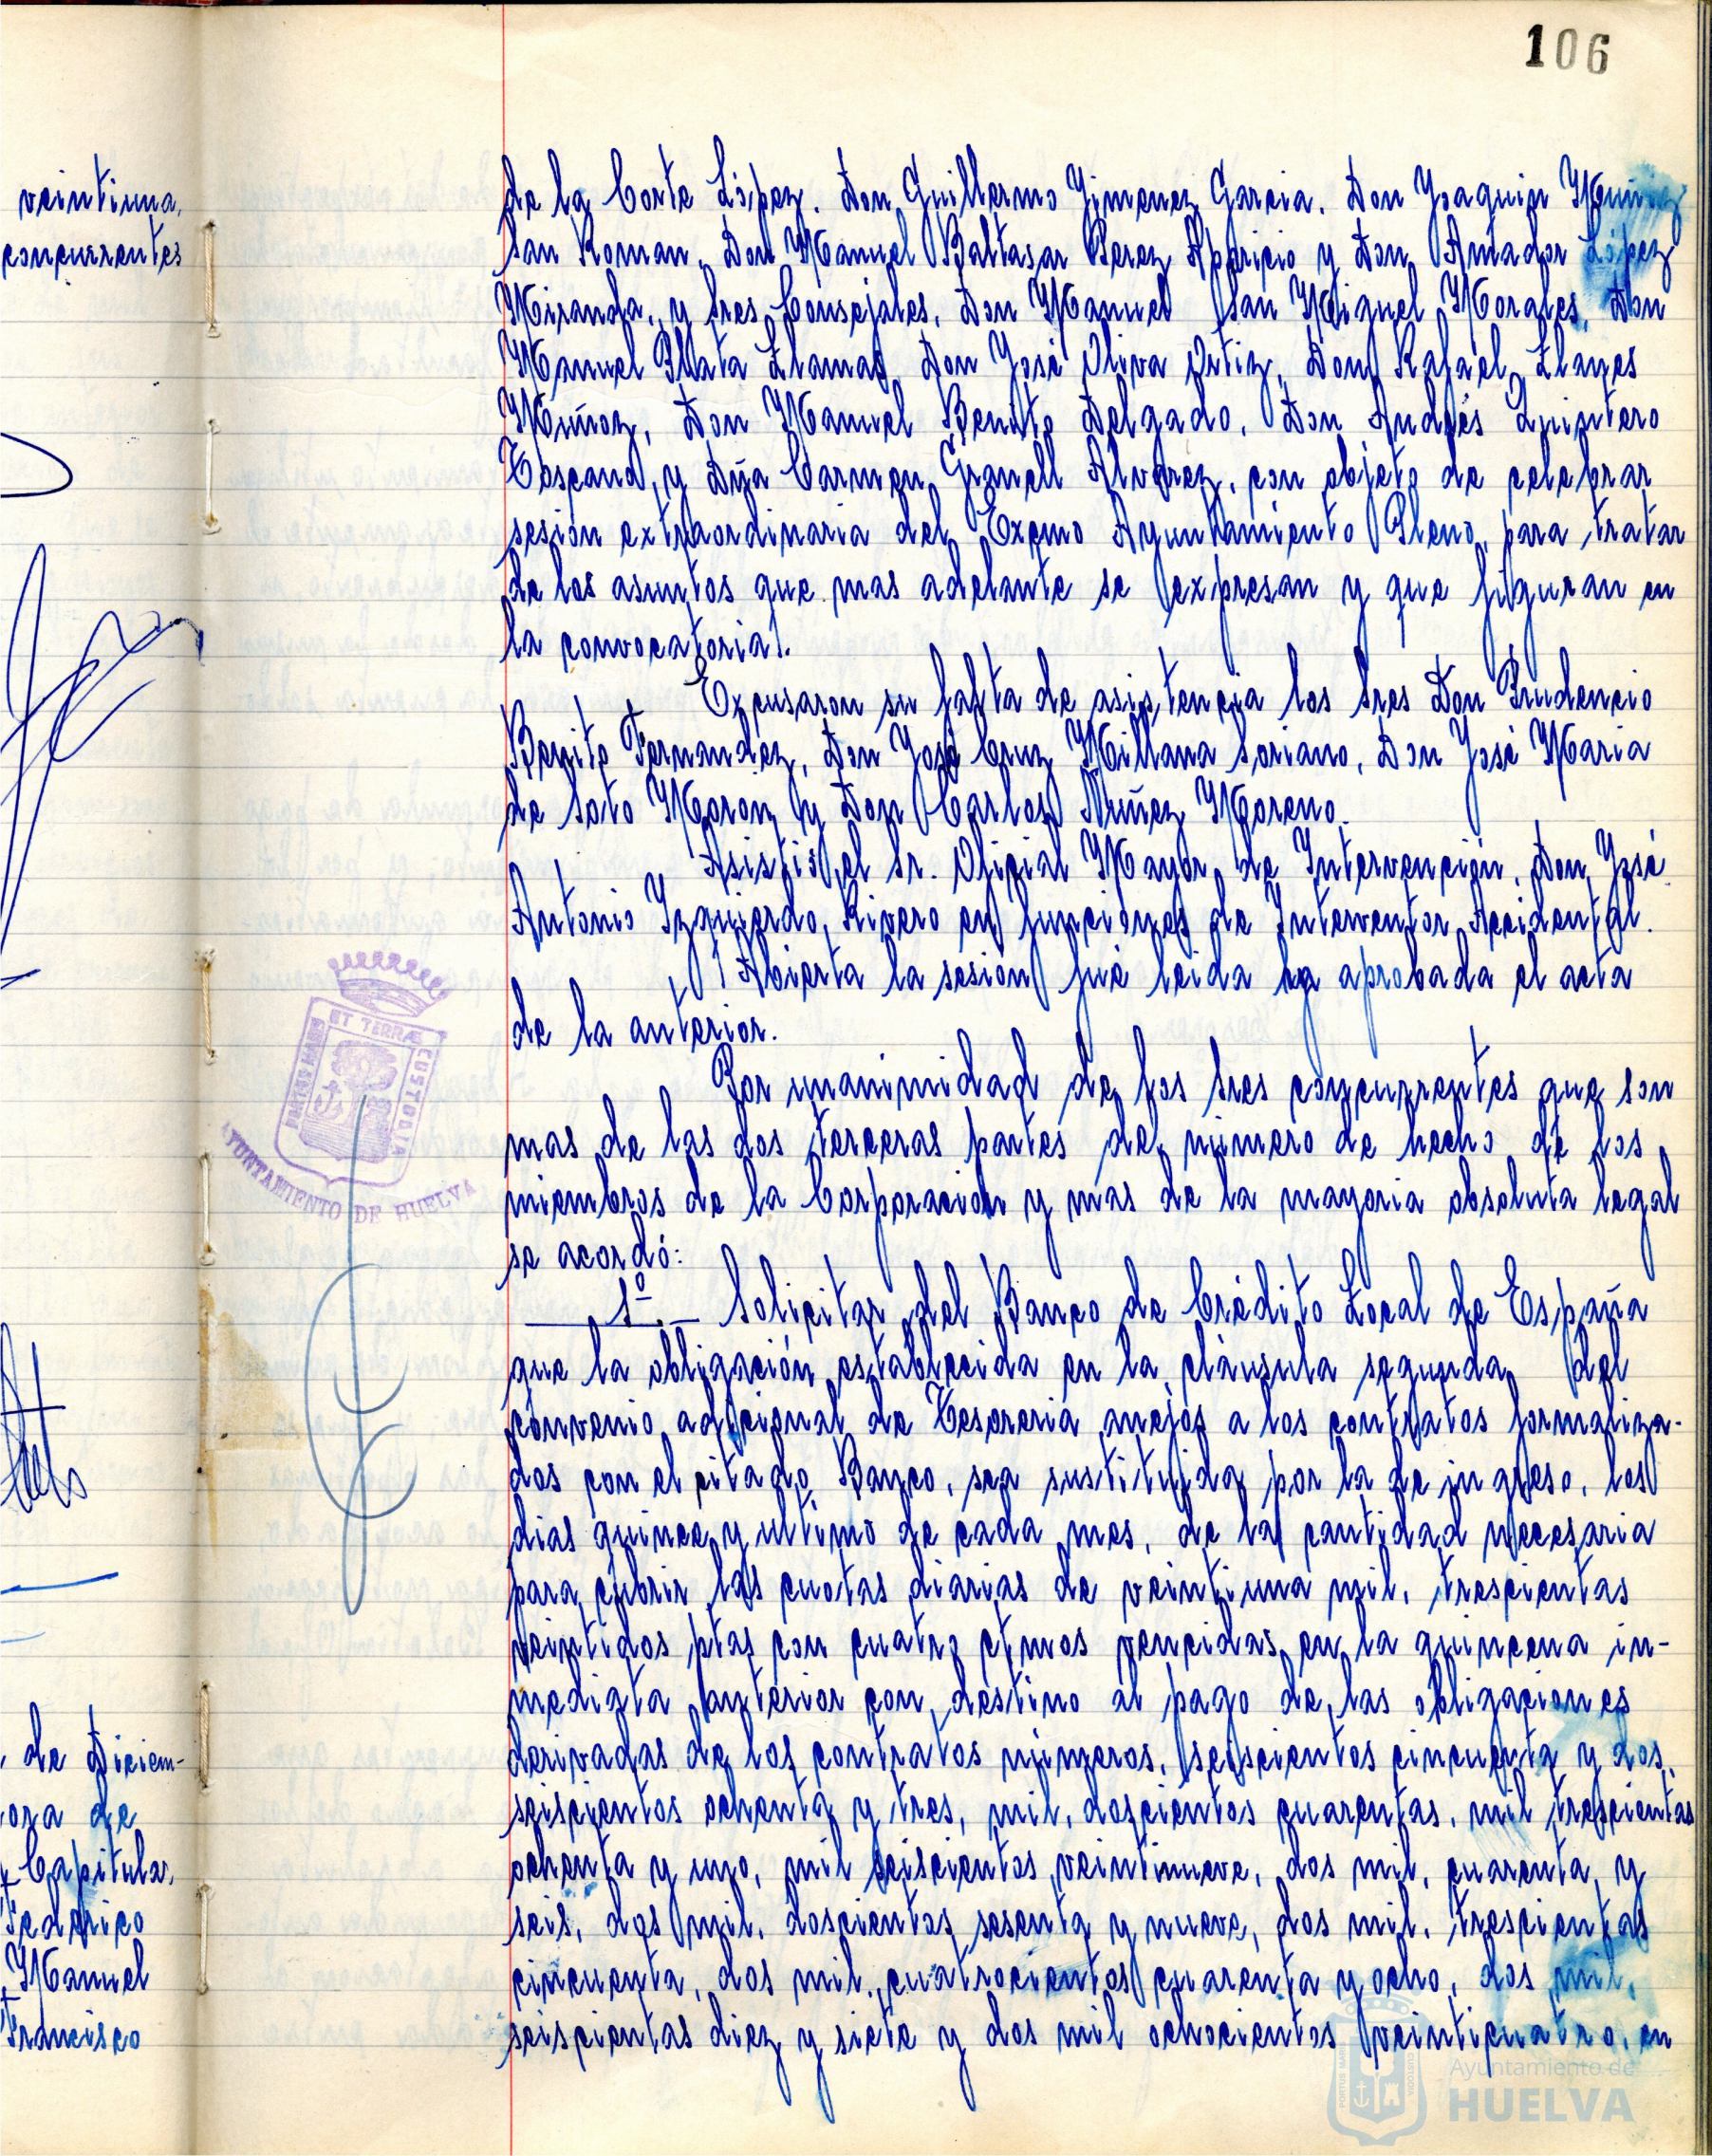 106
veintiuna,
concurrentes
de Diciem-
ora de
Capitular,
Federico
Manuel
Francisco
de la Corte López. Don Guillermo Jimenez Garcia. Don Joaquin Muñiz
San Roman, Don Manuel Baltasar Perez Aparicio y Don Amador López
Miranda, y Sres Consejales, Don Manuel San Miguel Morales, Don
Manuel Plata Llamas, Don José Oliva Ortiz, Don Rafael Llanes
Muñoz, Don Manuel Benito Delgado, Don Andrés Quintero
Toscano, y Dña Carmen Granell Alvarez, con objeto de celebrar
sesión extraordinaria del Excmo Ayuntamiento Pleno, para tratar
de los asuntos que mas adelante se expresan y que figuran en
la convocatoria.
Excusaron su falta de asistencia los Sres Don Prudencio
Benito Fernandez, Don José Cruz Millana Soriano, Don José Maria
de Soto Moron y Don Carlos Nuñez Moreno.
Asistió el Sr. Oficial Mayor de Intervención, Don José
Antonio Izquierdo Rivero en funciones de Interventor Accidental.
Abierta la sesión fué leida y aprobada el acta
de la anterior.
Por unanimidad de los Sres concurrentes que son
mas de las dos terceras partes de número de hecho de los
miembros de la Corporación y mas de la mayoria absoluta legal
se acordó:
1º.- Solicitar del Banco de Crédito Local de España
que la obligación establecida en la cláusula segunda del
convenio adicional de Tesoreria anejos a los contratos formaliza-
dos con el citado Banco, sea sustituida por la de ingreso, los
dias quince y ultimo de cada mes, de la cantidad necesaria
para cubrir las cuotas diarias de veintiuna mil, trescientas
veintidos ptas con cuatro ctmos vencidas en la quincena in-
mediata anterior con destino al pago de las obligaciones
derivadas de los contratos números, seiscientos cincuenta y dos,
seiscientos ochenta y tres, mil, doscientos cuarentas, mil trescientas
ochenta y uno, mil seiscientos veintinueve, dos mil, cuarenta y
seis, dos mil, doscientos sesenta y nueve, dos mil, trescientas
cincuenta, dos mil, cuatrocientos cuarenta y ocho, dos mil,
seiscientas diez y siete y dos mil ochocientos veinticuatro, en
PORTUS MARIS
ET TERRAE
CUSTODIA
AYUNTAMIENTO DE HUELVA
Ayuntamiento de
HUELVA